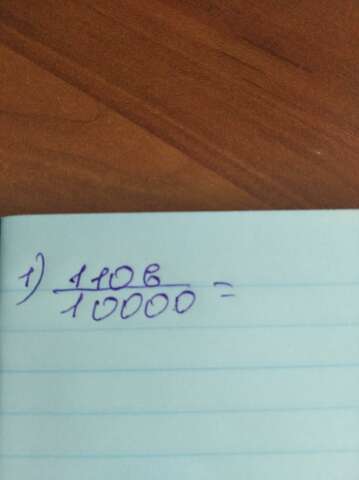 1) 1106
10000 =